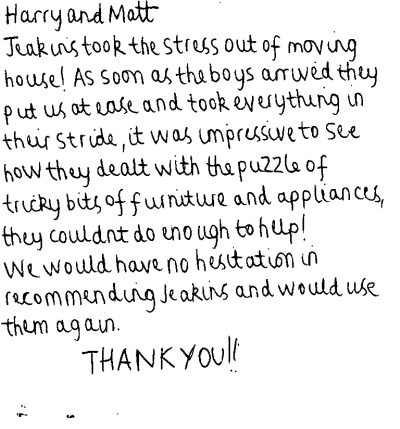 Harry and Matt
Jeakins took the stress out of moving
house! As soon as the boys arrived they
put us at ease and took everything in
their stride, it was impressive to see
how they dealt with the puzzle of
tricky bits of furniture and appliances,
they couldnt do enough to help!
We would have no hesitation in
recommending Jeakins and would use
them again.
THANK YOU!!